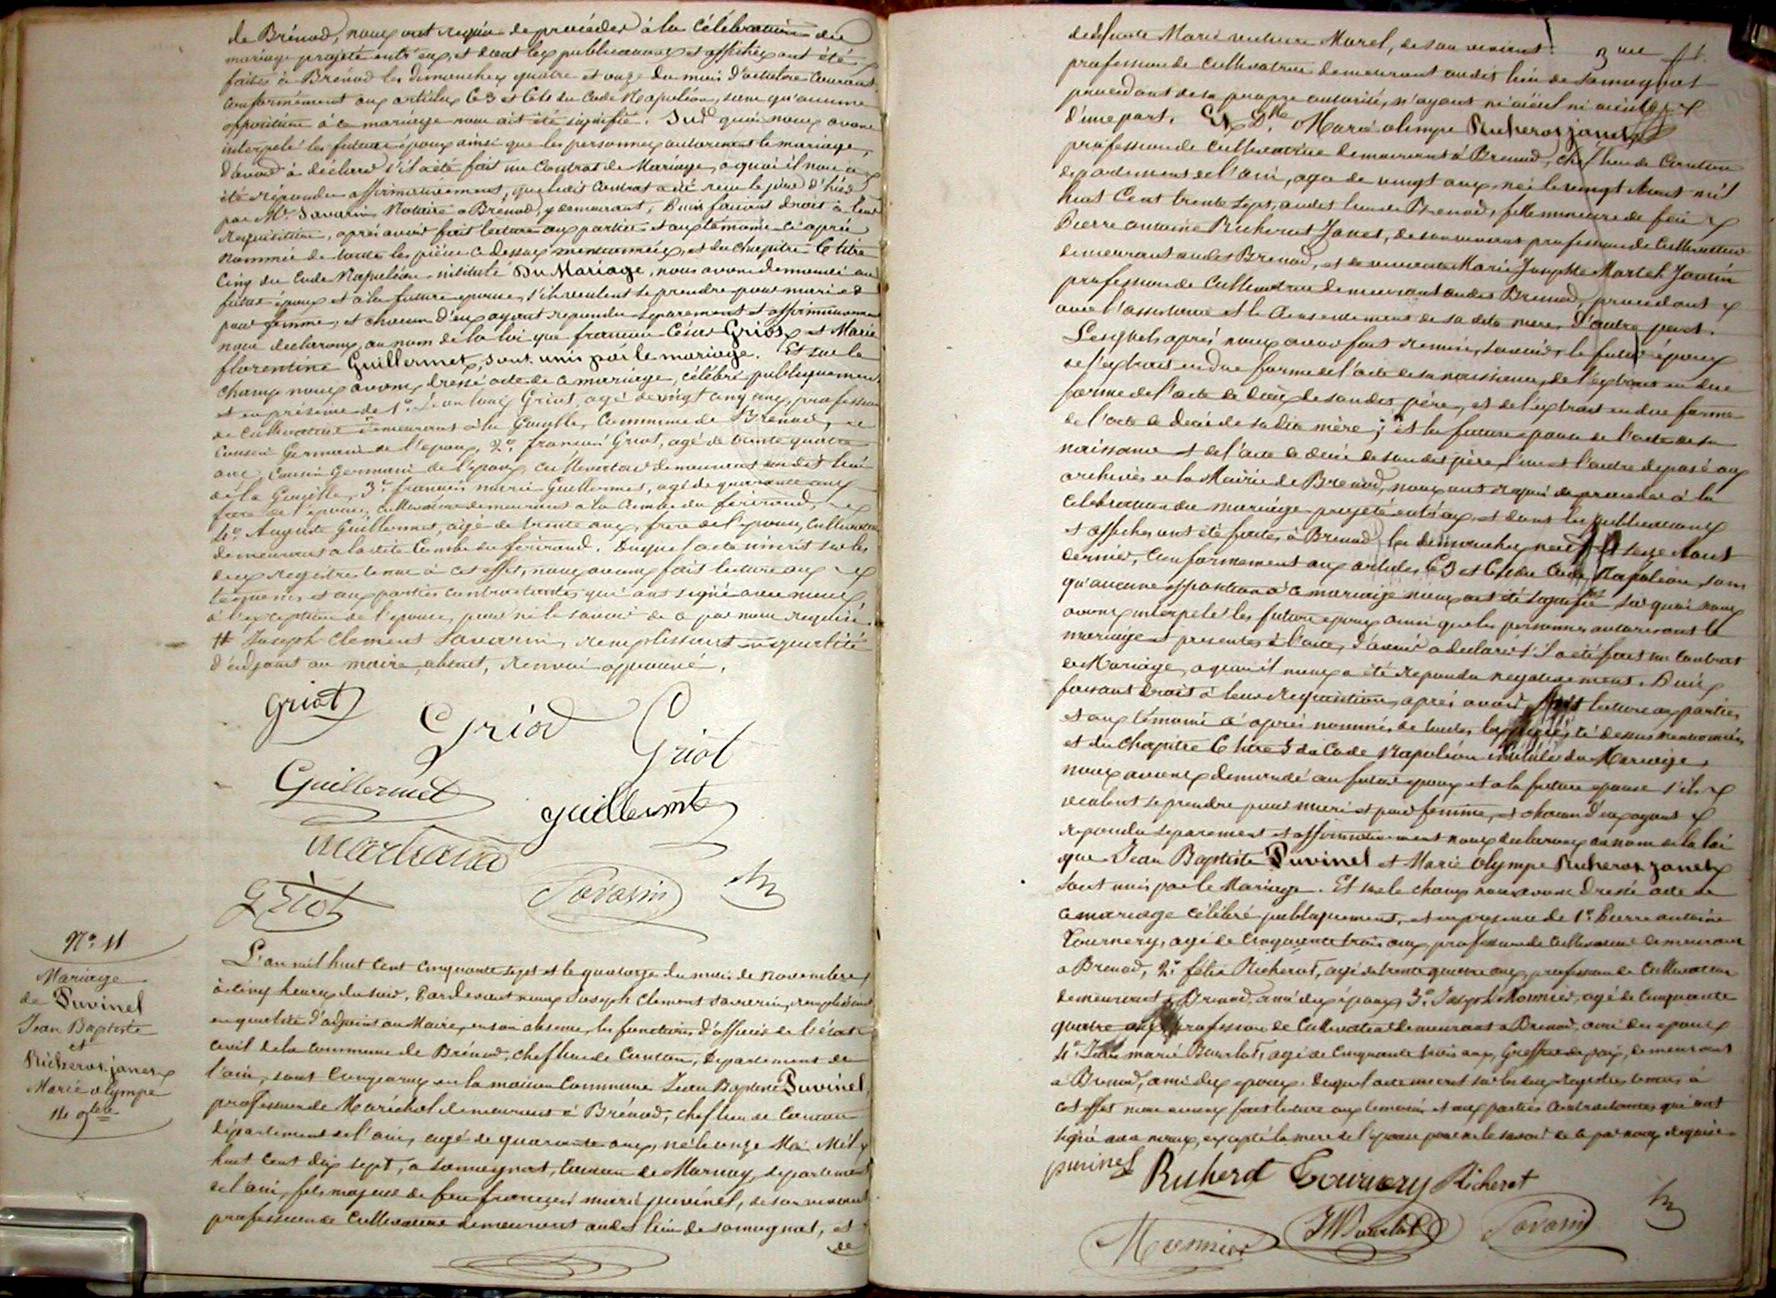 de Brénod, nous ont requis de procéder à la célébration du
mariage projeté entr'eux, et dont les publications et affiches ont été
faites à Brénod les dimanches quatre et onze du mois d'octobre courant
conformément aux articles 63 et 64 du Code Napoléon, sans qu'aucune
opposition à ce mariage nous ait été signifié. Sur quoi nous avons
interpelé les futurs époux ainsi que les personnes autorisant le mariage,
d'avoir à déclarer s'il a été fait un Contrat de Mariage, a quoi il nous a
été répondu affirmativement, que ledit Contrat a été reçu le jour d'hier
par Me Savarin Notaire a Brénod, y demeurant, Puis faisant droit à leur
réquisition, après avoir fait lecture aux parties et aux témoins ci après
nommés de toutes les pièces ci dessus mentionnées, et du chapitre 6 titre
Cinq du Code Napoléon intitulé Du Mariage, nous avons demandé au
futur époux et à la future épouse, s'ils veulent se prendre pour mari et
pour femme, et chacun d'eux ayant répondu séparement et affirmativement
nous déclarons, au nom de la loi que françois César Griot et Marie
florentine Guillermet, sont unis par le mariage. Et sur le
champ nous avons dressé acte de ce mariage, célébré publiquement
et en présence de 1° Griot, agé de vingt cinq ans, profession
de Cultivateur demeurant à la Gouille, Commune de Brénod,
Cousin Germain de l'époux, 2° françois Griot, agé de trente quatre
ans Cousin Germain de l'époux, cultivateur demeurant au dit lieu
de la Gouille, 3° françois marie Guillermet, agé de quarante ans
frère de l'épouse, cultivateur demeurant à la Combe du ferrand,
4° Auguste Guillermet, agé de trente ans, frère de l'épouse, Cultivateur
demeurant a la dite Combe du ferrand. Duquel acte inscrit sur les
deux registres tenus à cet effet, nous avons fait lecture aux
témoins et aux parties contractantes qui ont signé avec nous
à l'exception de l'épouse, pour ne le savoir de ce par nous requise.
# Joseph Clement Savarin, remplissant en qualité
d'adjoint au maire absent, Renvoi approuvé.
Griot Griot Griot
Guillermet guillermet
Griot Savarin
N° 11
Mariage
de Puvinel
Jean Baptiste
et
Richerot janet
Marie olympe
14 9bre
L'an mil huit cent cinquante sept et le quatorze du mois de novembre
à cinq heures du soir. Pardevant nous Joseph Clement Savarin, remplissant
en qualité d'adjoint au Maire, en son absence, les fonctions d'officier de l'état
civil de la commune de Brénod, chef lieu de Canton, Département de
l'ain, sont comparus en la maison Commune Jean Baptiste Puvinel,
profession de Maréchal demeurant à Brénod, chef lieu de Canton
département de l'ain, agé de quarante ans, né le onze Mai Mil
huit cent dix sept, a samognat, Canton de département
de l'ain, fils majeur de feu françois marie puvinel, de son vivant
profession de Cultivateur demeurant audit lieu de samognat, et
de
de défunte Marie Morel, de son vivant
profession de Cultivatrice demeurant audit lieu de Samognat
procédant de sa propre autorité, n'ayant ni aïeul ni aieule
d'une part. Et Dlle Marie olimpe Richerot janet
profession de Cultivatrice demeurant à Brenod, chef lieu de Canton
département de l'ain, agée de vingt ans, née le vingt Aout mil
huit Cent trente sept, audit lieu de Brenod, fille mineure de feu
Pierre antoine Richerot Janet, de son vivant profession de Cultivateur
demeurant audit Brenod, et de vivante Marie Josephte Martel Jantin
profession de Cultivatrice demeurant audit Brenod, procédant
avec l'assistance et le Consentement de sa dite mere, D'autre part.
Lesquels après nous avoir fait remise, savoir, le futur époux
de l'extrait en due forme de l'acte de sa naissance, de l'extrait en due
forme de l'acte de décès de son dit père, et de l'extrait en due forme
de l'acte de décès de sa dite mère; et la future épouse de l'acte de sa
naissance et de l'acte de décès de son dit père, l'un et l'autre déposé aux
archives de la Mairie de Brenod, nous ont requis de proceder à la
Célébration du mariage projeté entr'eux, et dont les publications
et affiches ont été faites à Brenod les dimanches neuf et seize Aout
dernier, Conformement aux articles 63 et 64 du Code Napoléon, sans
qu'aucune opposition à ce mariage nous ait été signifié. Sur quoi nous
avons interpelé les futurs époux ainsi que les personnes autorisant le
mariage et presentes à l'acte, d'avoir a déclarer s'il a été fait un Contrat
de Mariage, a quoi il nous a été repondu negativement. Puis
faisant Droit à leur requisition, après avoir fait lecture aux parties
et aux témoins ci après nommés de toutes les pièces ci dessus mentionnées
et du Chapitre 6 titre 5 du Code Napoléon intitulé du Mariage,
nous avons demandé au futur époux et a la future épouse s'ils
veulent se prendre pour mari et pour femme, et chacun d'eux ayant
répondu separement et affirmativement nous déclarons au nom de la loi
que Jean Baptiste Puvinel et Marie olympe Richerot janet
sont unis par le Mariage. Et sur le champ nous avons dressé acte de
ce mariage célébré publiquement, et en presence de 1° Pierre antoine
Tournery, agé de cinquante trois ans, profession de Cultivateur demeurant
a Brenod, 2° félix Richerot, agé de trente quatre ans, profession de Cultivateur
demeurant a Brenod, ami des époux, 3° Joseph Monnier, agé de Cinquante
quatre ans profession de Cultivateur demeurant a Brenod, ami des epoux
4° Jean marie Bourlot, agé de Cinquante trois ans, Greffier de paix, demeurant
a Brenod, ami des epoux. Duquel acte inscrit sur les deux Registres tenus à
cet effet nous avons fait lecture aux temoins et aux parties Contractantes qui ont
signé avec nous, excepté la mere de l'épouse pour ne le savoir de ce par nous requise.
puvinel Richerot Tournery Richerot
Monnier JMBourlot Savarin